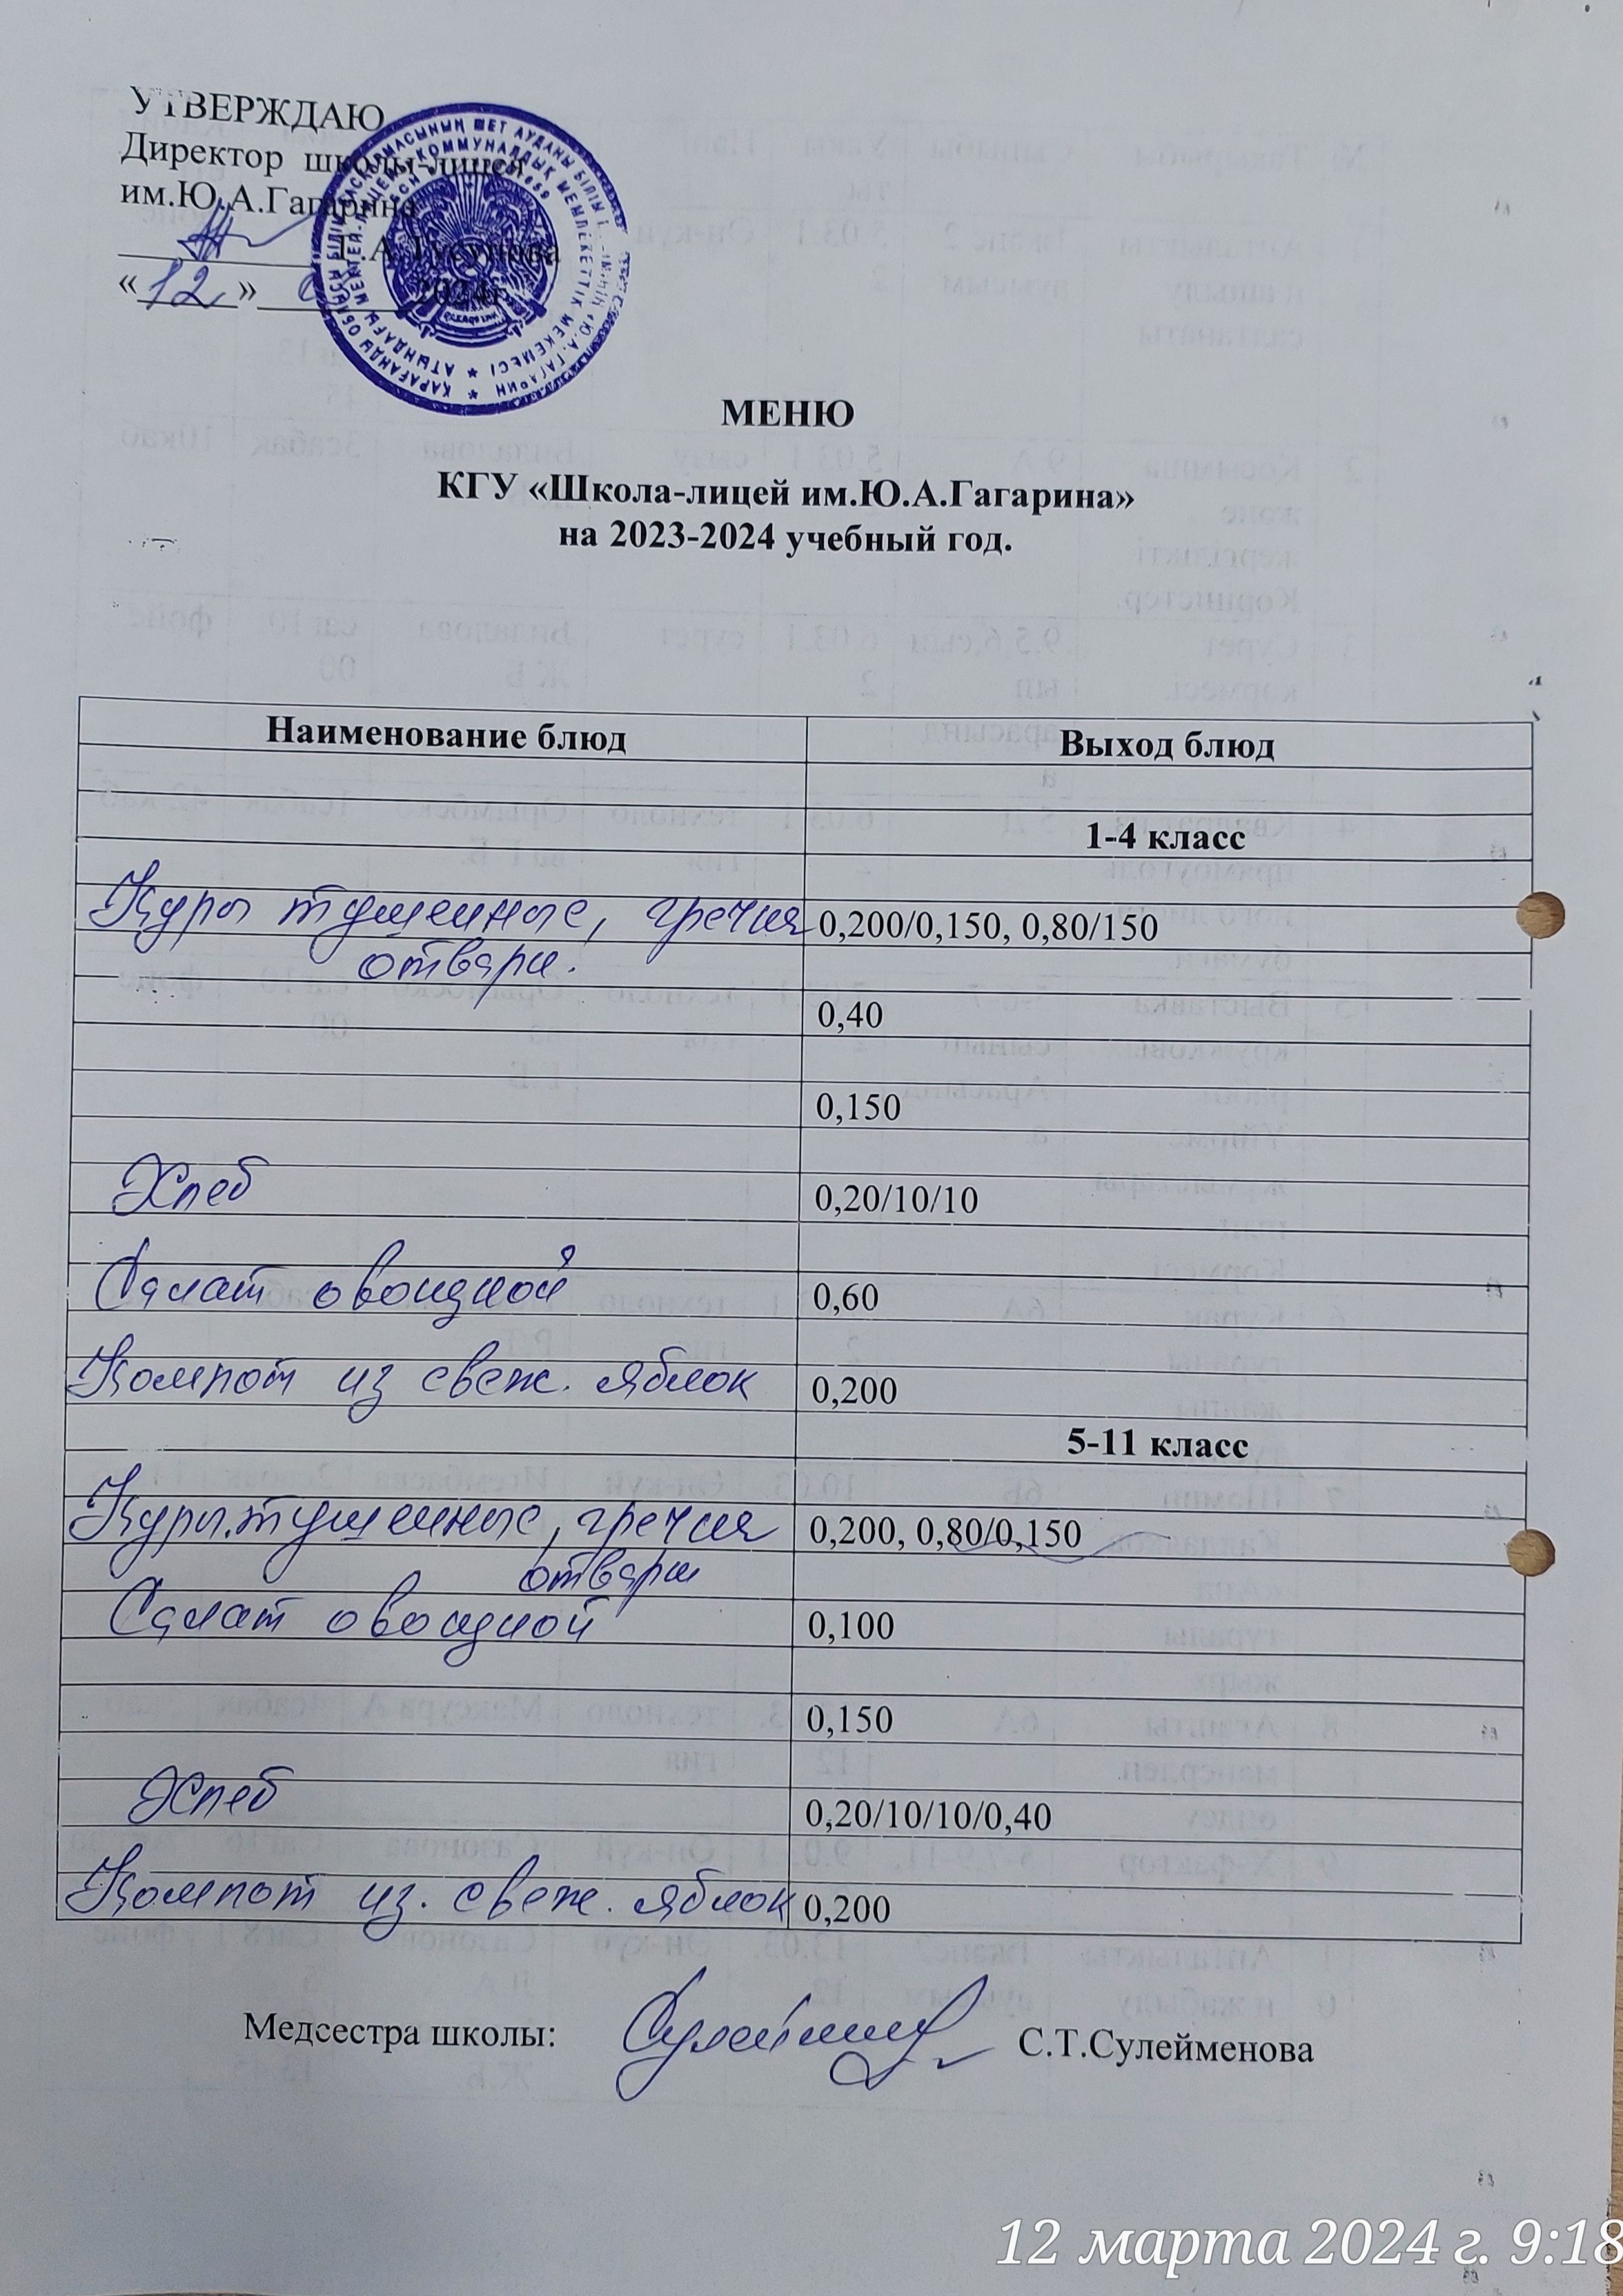 УТВЕРЖДАЮ
Директор школы-лицея
им.Ю.А.Гагарина
«12»
2024г.
МЕНЮ
КГУ «Школа-лицей им.Ю.А.Гагарина»
на 2023-2024 учебный год.
Наименование блюд Выход блюд
1-4 класс
Куры тушенные, гречка 0,200/0,150, 0,80/150
отварн.
0,40
0,150
Хлеб 0,20/10/10
Салат овощной 0,60
Компот из свеж. яблок 0,200
5-11 класс
Куры.тушенные, гречка 0,200, 0,80/0,150
отварн
Салат овощной 0,100
0,150
Хлеб 0,20/10/10/0,40
Компот из. свеж. яблок 0,200
Медсестра школы: С.Т.Сулейменова
12 марта 2024 г. 9:18